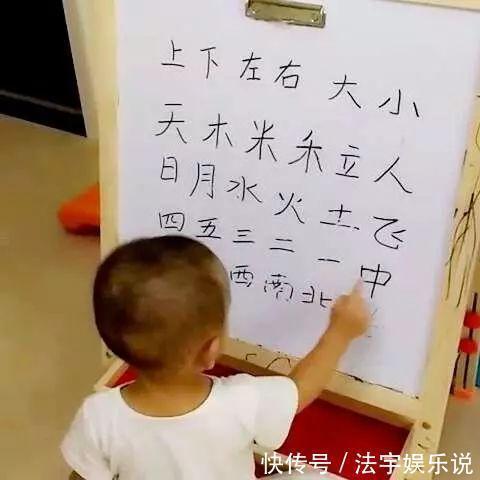 上下左右大小
天木米禾立人
日月水火土飞
四五三二一中
西南北
快传号/法宇娱乐说